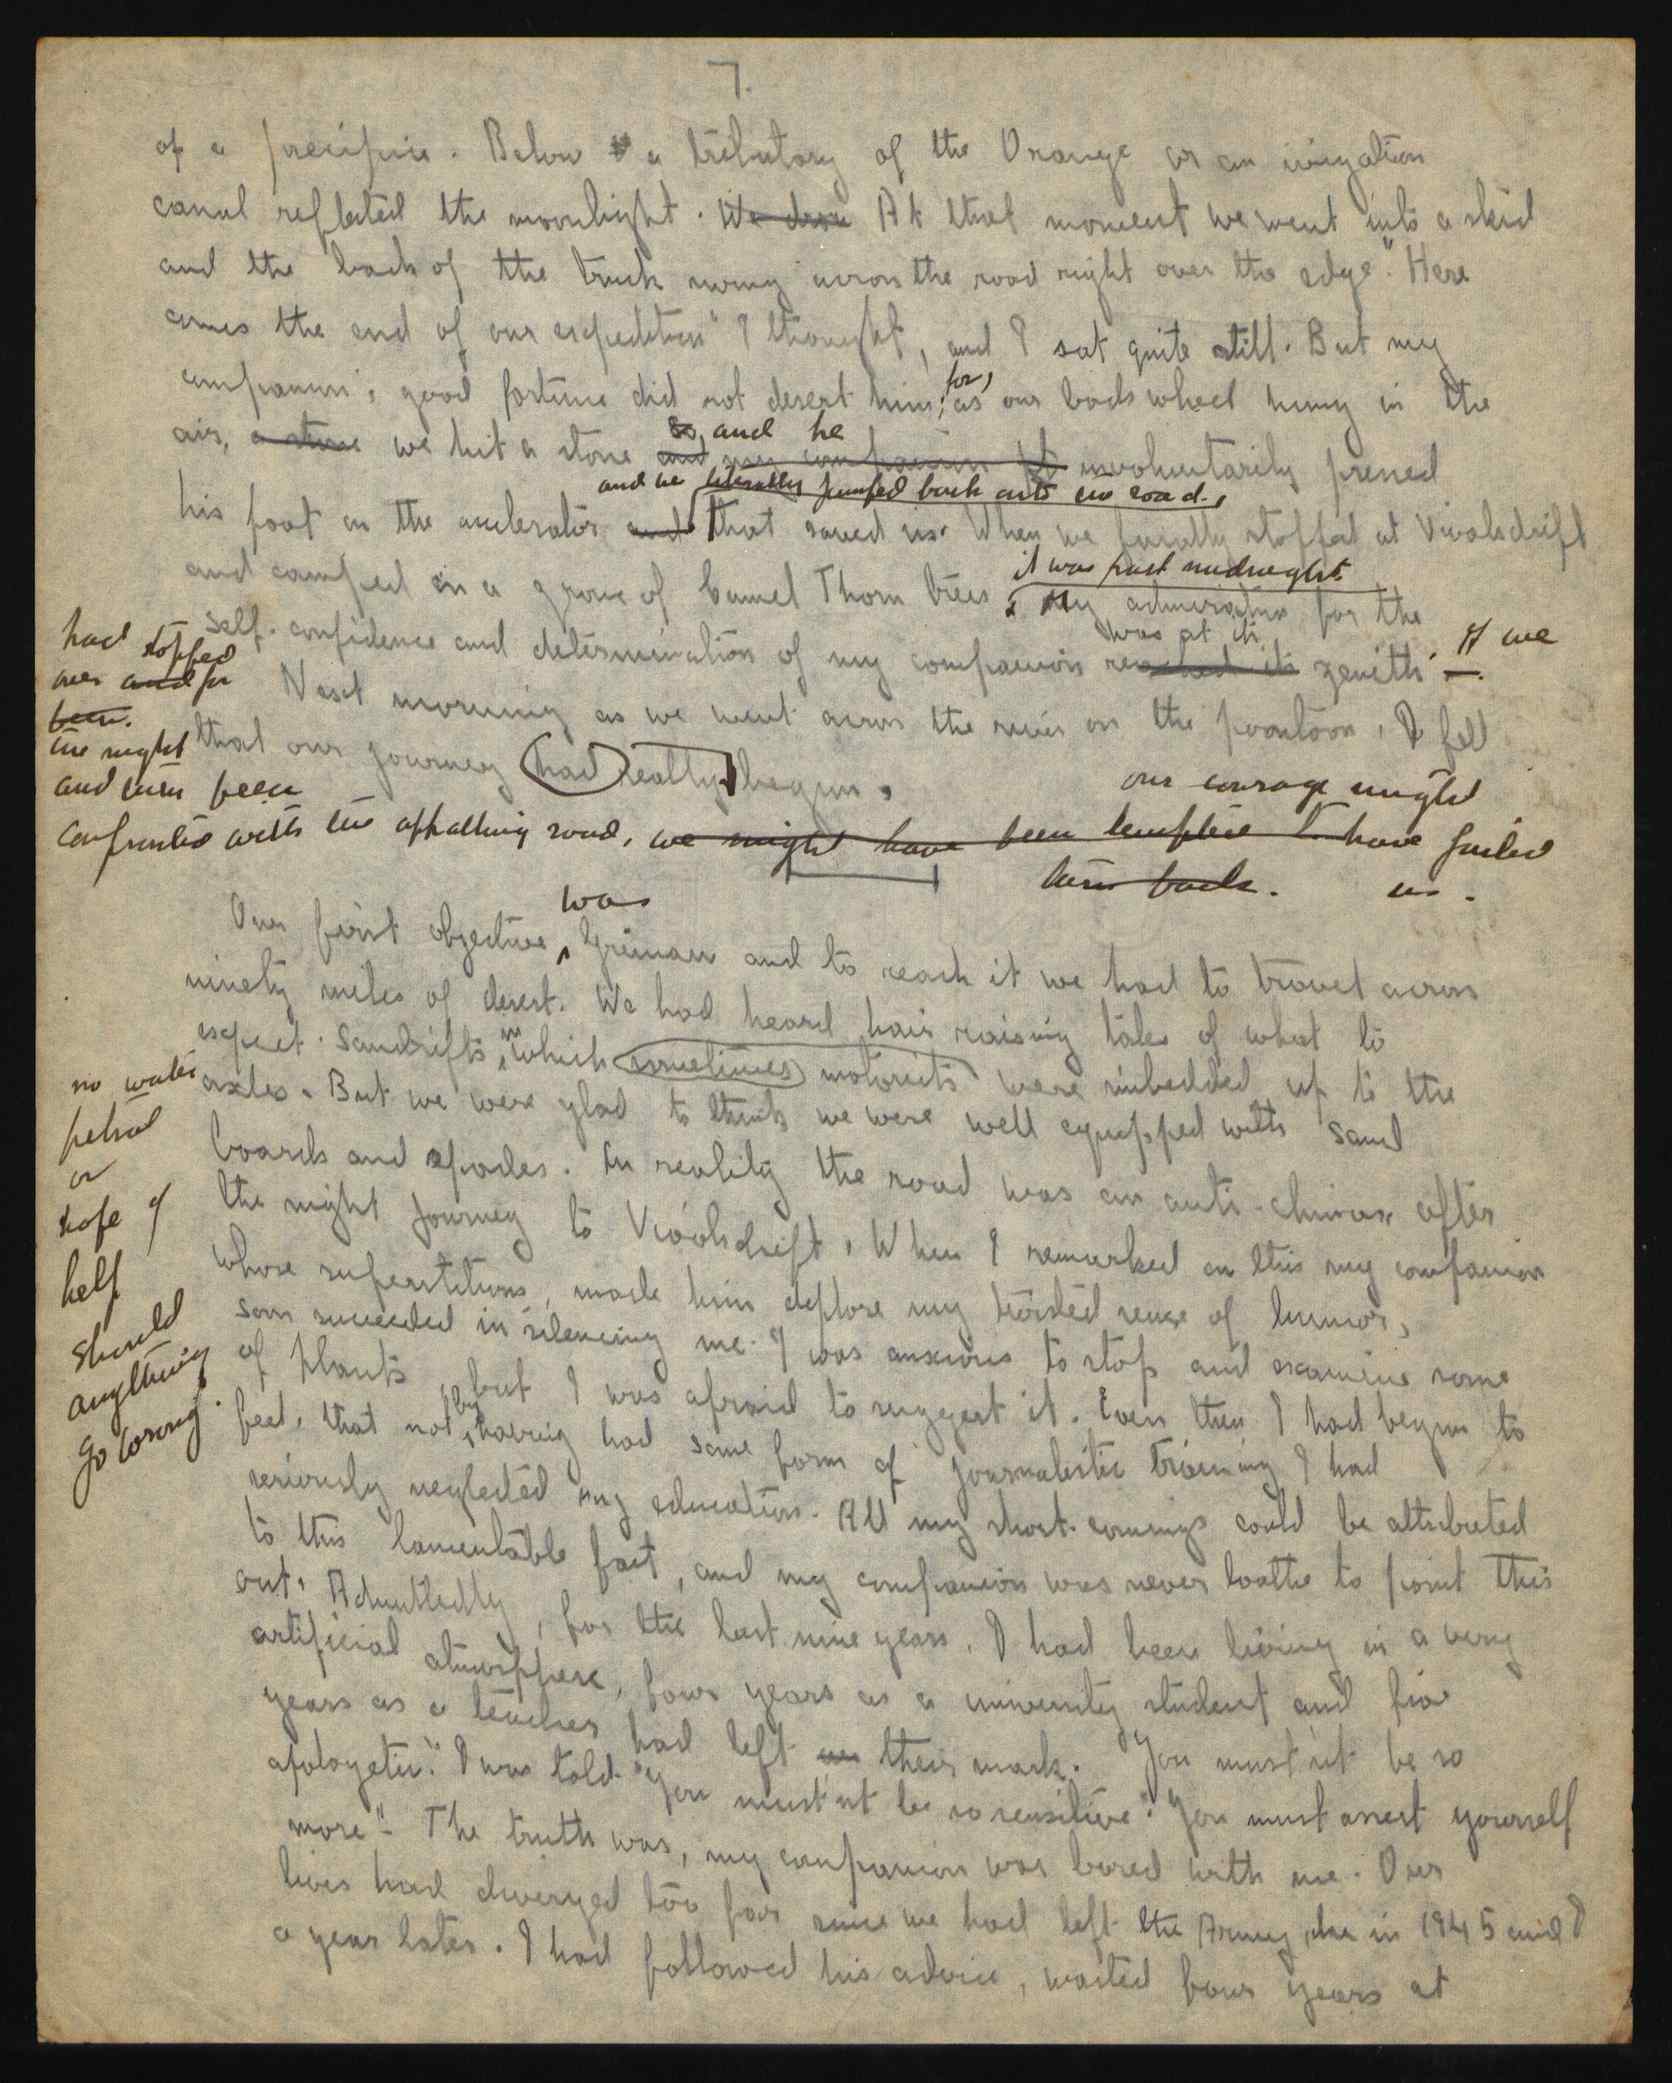 7.
of a precipice. Below a tributary of the Orange or an irrigation
canal reflected the moonlight. We drove At that moment we went into a skid
and the back of the truck swung across the road right over the edge. "Here
comes the end of our expedition" I thought, and I sat quite still. But my
for,
companion's good fortune did not desert him; as our back wheel hung in the
so, and he
air, a stone we hit a stone and my companion involuntarily pressed
and we literally jumped back onto the road.
his foot on the accelerator and that saved us. When we finally stopped at Vioolsdrift
it was past midnight
and camped in a grove of Camel Thorn trees, My admiration for the
was at its
self-confidence and determination of my companion reached its zenith. If we
had stopped
over and for
been.
the night
and been
confronted with the appalling road, we might have been tempted to have failed
our courage might
turn back. us.
Next morning as we went across the river on the pontoon, I felt
that our journey had really begun.
was
Our first objective, Grünau and to reach it we had to travel across
ninety miles of desert. We had heard hair raising tales of what to
in
expect. Sandrifts, which sometimes motorists were imbedded up to the
axles. But we were glad to think we were well equipped with sand
no water
petrol
or
hope of
help
should
anything
go wrong.
boards and spades. In reality the road was an anti-climax after
the night journey to Vioolsdrift. When I remarked on this my companion
whose superstitions, made him deplore my twisted sense of humor,
soon succeeded in silencing me. I was anxious to stop and examine some
of plants, but I was afraid to suggest it. Even then I had begun to
by
feel, that not having had some form of journalistic training I had
seriously neglected my education. All my short-comings could be attributed
to this lamentable fact, and my companion was never loathe to point this
out. Admittedly, for the last nine years, I had been living in a very
artificial atmosphere, four years as a university student and five
years as a teacher had left their mark. "You must'nt be so
apologetic." I was told "You must'nt be so sensitive". "You must assert yourself
more". The truth was, my companion was bored with me. Our
lives had diverged too far since we had left the Army, he in 1945 and I
a year later. I had followed his advice, wasted four years at